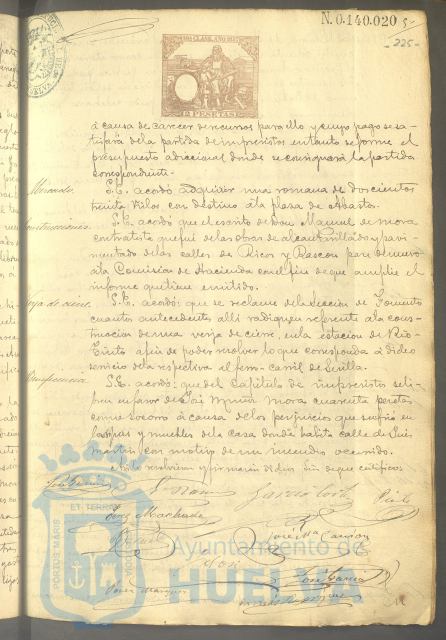 N. 0.140.020
5
225
12 PESETAS
á causa de carecer de recursos para ello y cuyo pago se sa-
tisfará de la partida de imprevistos en tanto se forme el
presupuesto adicional donde se consignará la partida
correspondiente.
Mercado. S.E. acordó adquirir una romana de doscientos
treinta kilos con destino a la plaza de Abastos.
S.E. acordó que el escrito de Don Manuel de Mora
contratista que fué de las obras de alcantarillado y pavi-
mentado de las calles de Ricos y Rascon pase de nuevo
a la Comision de Hacienda con el fin de que amplie el
informe que tiene emitido.
S.E. acordó: que se reclame de la Seccion de Fomento
cuantos antecedentes alli radiquen referente a la cons-
truccion de una verja de cierre, en la estacion de Rio-
Tinto a fin de poder resolver lo que corresponda a dicho
servicio de la respectiva al ferro-carril de Sevilla.
Beneficencia. S.E. acordó: que del Capitulo de imprevistos se li-
bren en favor de José Muñoz Mora cuarenta pesetas
como socorro á causa de los perjuicios que sufrió en
ropas y muebles de la casa donde habita calle de San
Martin con motivo de un incendio ocurrido.
Asi lo resolvieron y firmarán dichos Sres de que certifico.
Garcia Cortés
José Machado
José Mª Carrion
José Garcia
PORTUS MARIS
ET TERRÆ
Ayuntamiento de
HUELVA